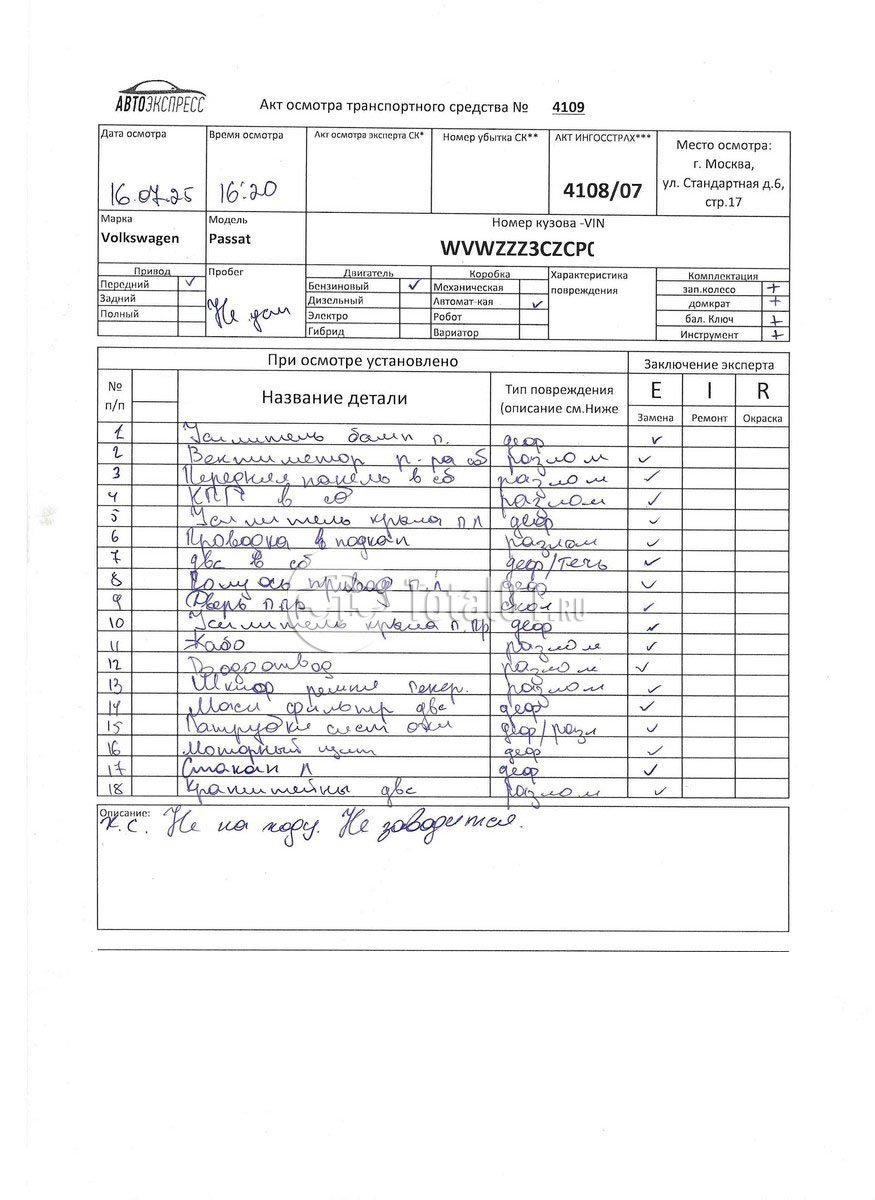 АВТОЭКСПРЕСС
Акт осмотра транспортного средства № 4109
Дата осмотра Время осмотра Акт осмотра эксперта СК* Номер убытка СК** АКТ ИНГОССТРАХ*** Место осмотра:
г. Москва,
16.07.25 16:20 4108/07 ул. Стандартная д.6,
стр.17
Марка Модель Номер кузова -VIN
Volkswagen Passat WVWZZZ3CZCP
Привод Пробег Двигатель Коробка Характеристика Комплектация
Передний ✓ Бензиновый ✓ Механическая повреждения зап.колесо +
Задний Не дан Дизельный Автомат-кая ✓ домкрат +
Полный Электро Робот бал. Ключ +
Гибрид Вариатор Инструмент +
При осмотре установлено Заключение эксперта
№ п/п Название детали Тип повреждения (описание см.Ниже E I R
Замена Ремонт Окраска
1 Усилитель бамп п. деф ✓
2 р-ра сб разлом ✓
3 Передняя панель в сб разлом ✓
4 КПП в сб разлом ✓
5 Усилитель крыла п.л деф ✓
6 Проводка в подкап разлом ✓
7 двс в сб деф/течь ✓
8 привод п л деф ✓
9 Дверь п.пр скол ✓
10 Усилитель крыла п.пр деф ✓
11 Жабо разлом ✓
12 Водоотвод разлом ✓
13 Шкив ремня генер. разлом ✓
14 Масл фильтр двс деф ✓
15 Патрубки сист охл деф/разл ✓
16 Моторный щит деф ✓
17 Стакан л деф ✓
18 Кранштейны двс разлом ✓
Описание:
К.С. Не на ходу. Не заводится.
Total
.RU